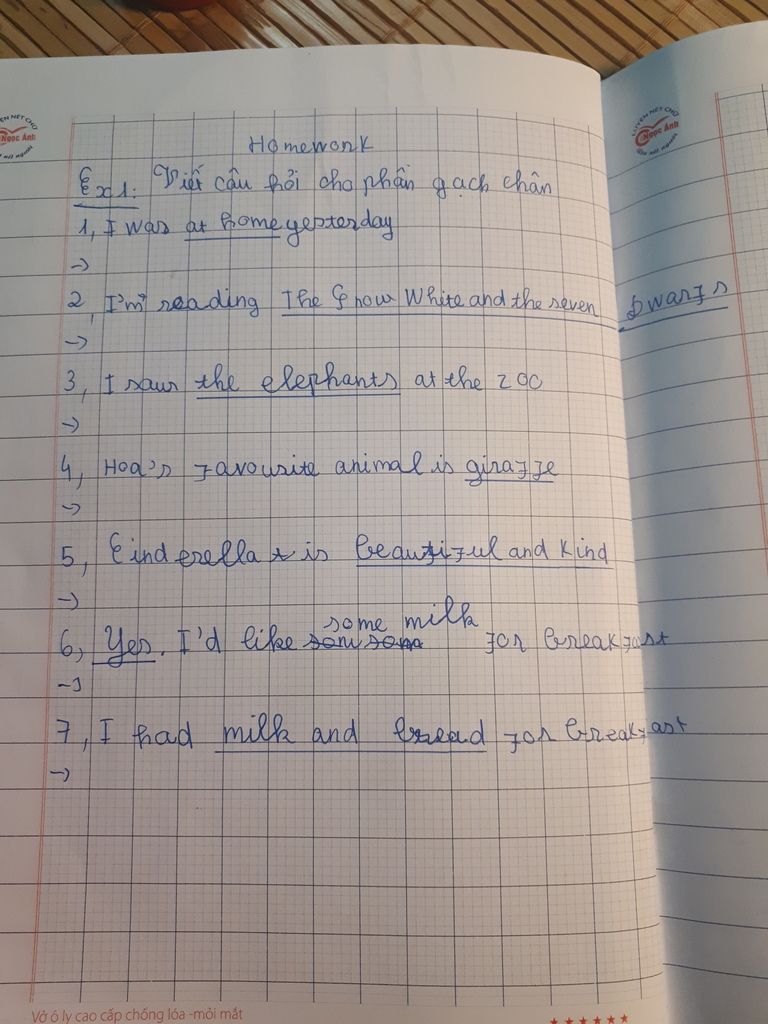 Homework
Ex1: Viết câu hỏi cho phần gạch chân
1, I was at home yesterday
->
2, I'm reading The Snow White and the seven Dwarfs
->
3, I saw the elephants at the zoo
->
4, Hoa's favourite animal is giraffe
->
5, Cinderella is beautiful and kind
->
6, Yes. I'd like some milk for breakfast
->
7, I had milk and bread for breakfast
->
Vở ô ly cao cấp chống lóa -mỏi mắt
LUYỆN NÉT CHỮ
Ngọc Ánh